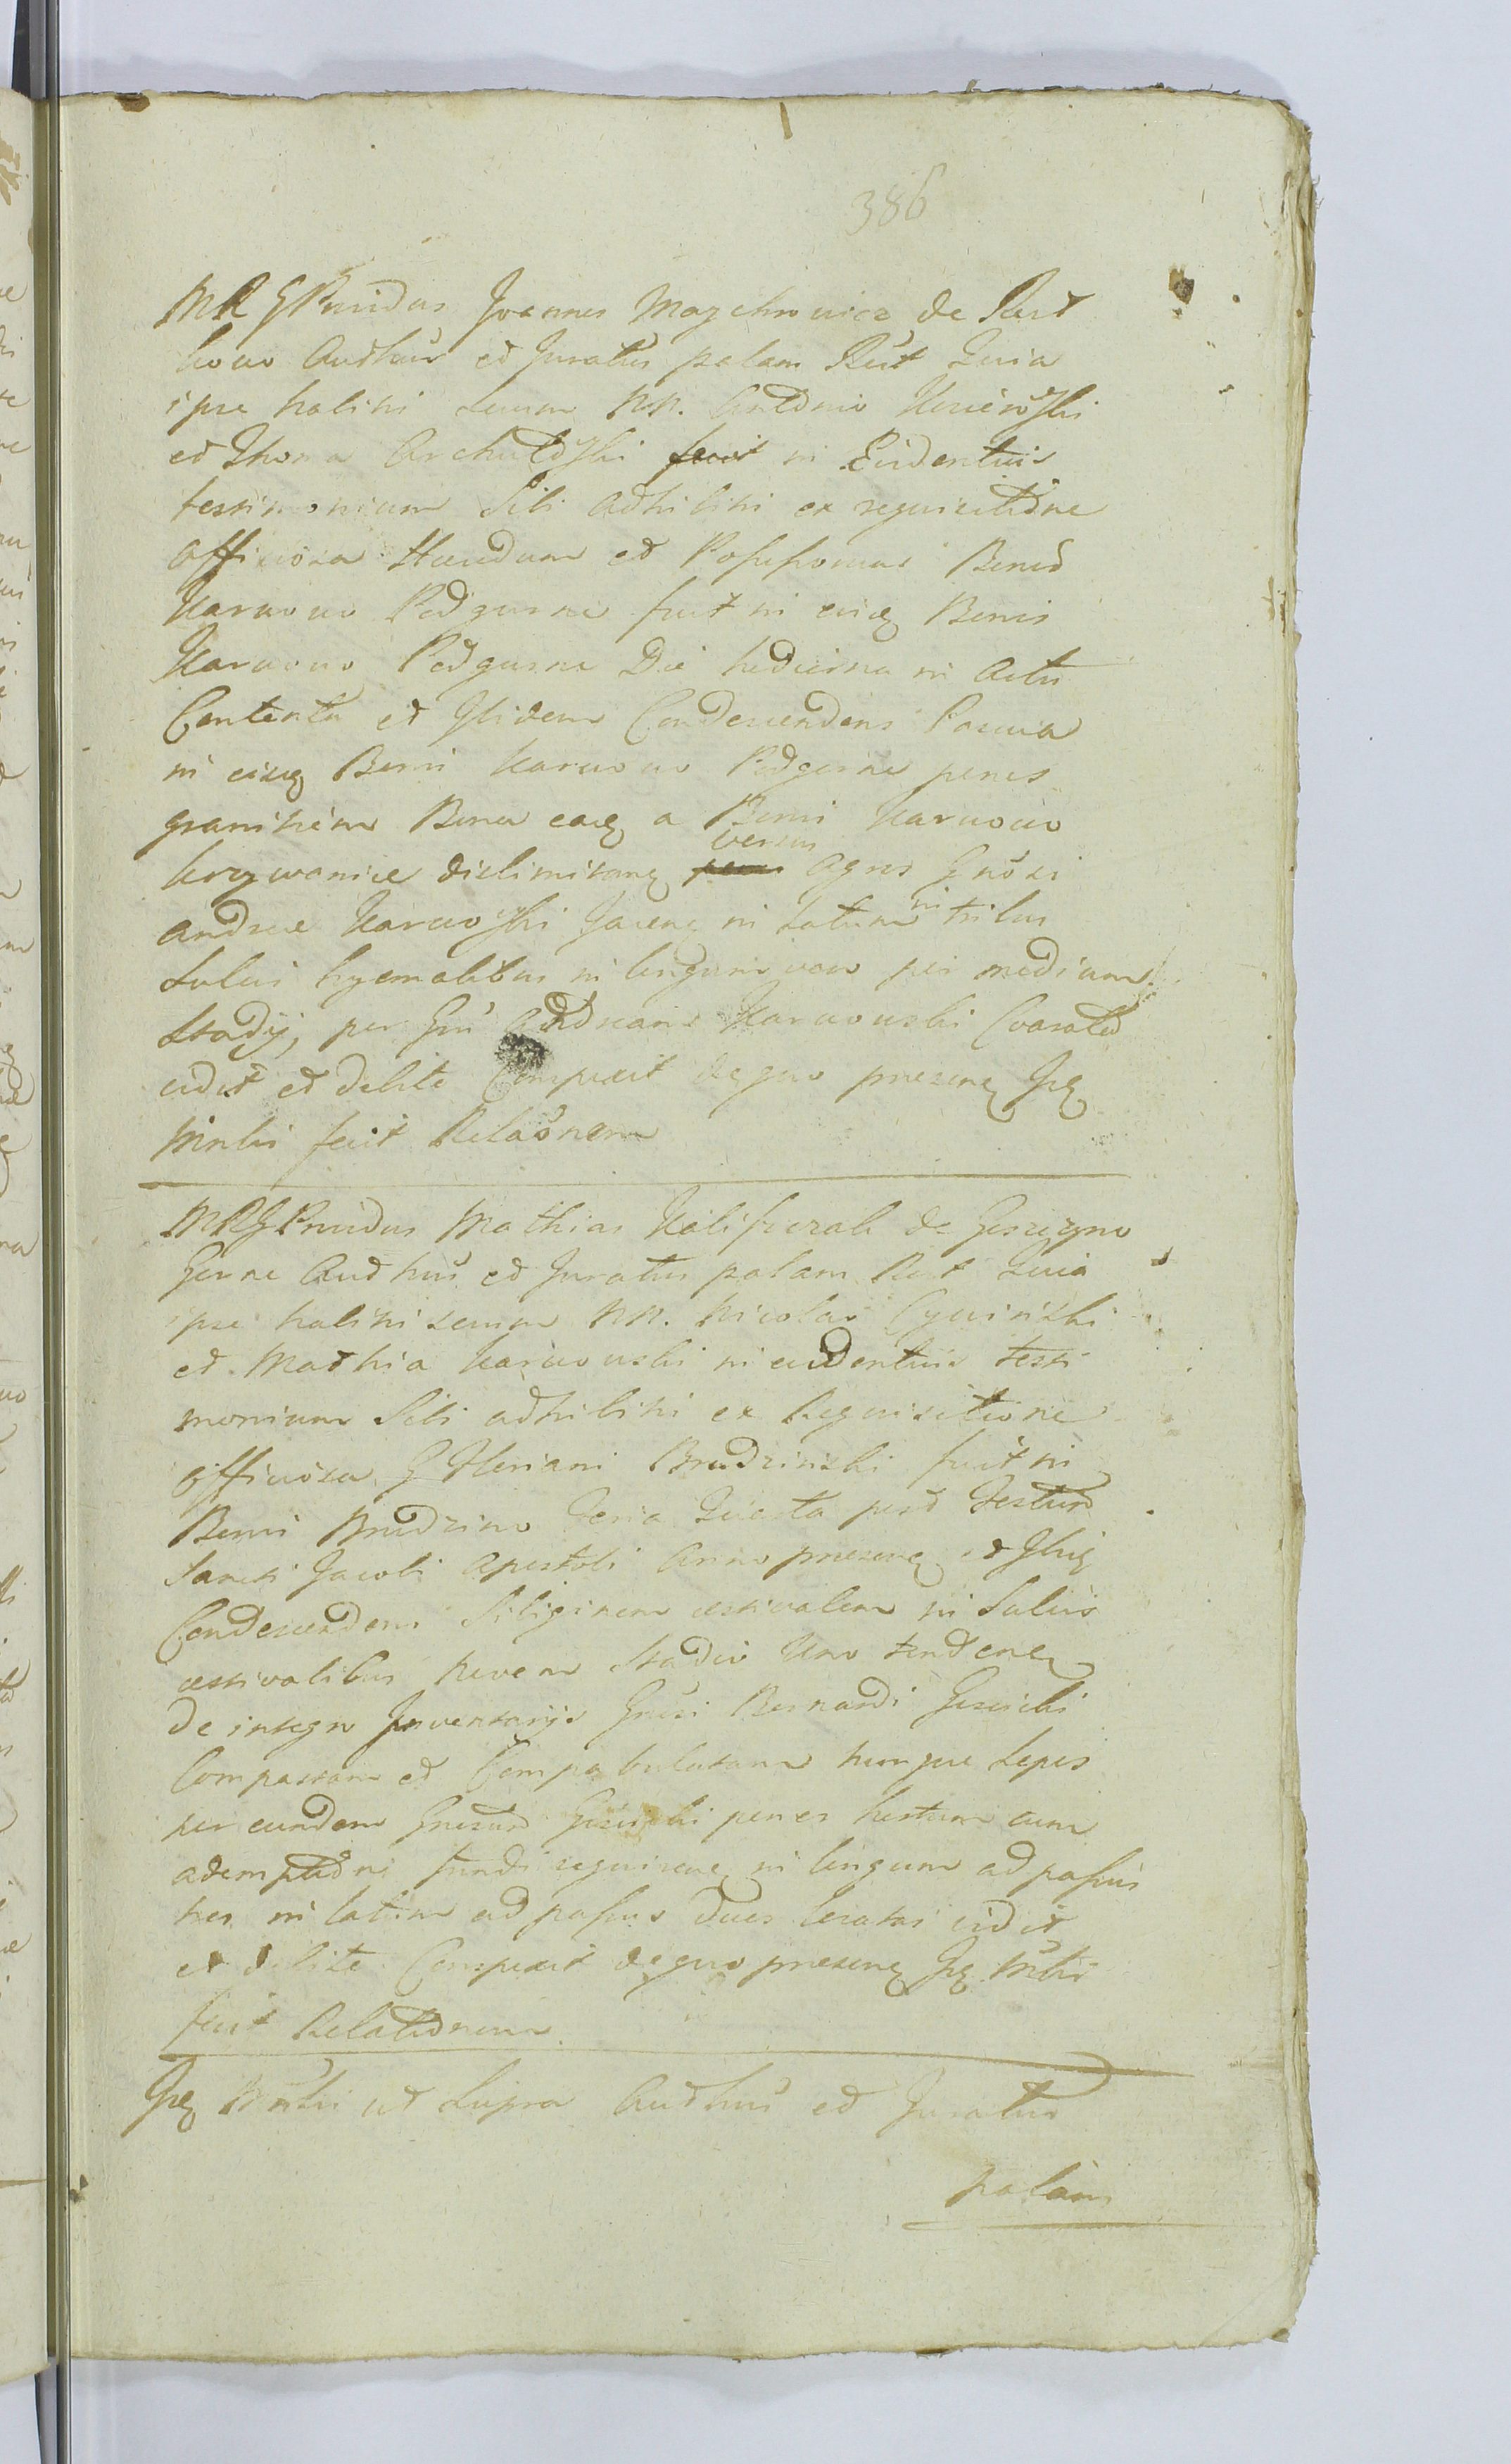 386
MRG Prvidus Joannes Maychrowicz de Rut
kowo Authus et Juratus palam Rect Quia
ipse habitis secum NN. Antonio Kurcowski
et Thoma Archutowski fecit in Evidentius
testimonium Sibi adhibitis ex requisitione
officiosa Haeredum et Possessorum Bonorum
Karwowo Podgurne fuit in eisq Bonis
Karwowo Podgurne Die hodierna in Actu
Contenta et Ibidem Condescendens
in eisq Bonis Karwowo Podgurne penes
granitiem Bona eaq a Bonis Karwowo
Krzywanice dislimitanq penes versus agros Gnosi
Andreae Karwoski Jacenq in Latum in tribus
Sulcis hyemalibus in longum vero per medium
Stadij, per Gnu Andream Karwowski
vidit et debite Conspexit de quo praesenq Jq
Minlis fecit Relaonem
MRG Prvidus Mathias de
Gorne Authus et Juratus palam Rect Quia
ipse habitis secum NN. Nicolao Cywinski
et Mathia Karwowski in evidentius testi
monium Sibi adhibitis ex Requisitione
officiosa G Floriani Brudzinski fuit in
Bonis Brudzino Feria Quarta post Festum
Sancti Jacobi Apostoli Anno praesenq et Ibiq
Condescendens Siliginem aestivalem in Sulcis
aestivalibus Novem Stadio Uno tendenq
de integro Inventarijs Gnosi Bernardi
Compastam et Compabulatam nunque Sepes
per eundem Gnosum penes hortum cum
ademptione fundi in longum ad passus
tres in latum ad passus duos locatas vidit
et debite Conspexit de quo praesenq Jq Mnlis
fecit Relationem
Jq Mnlis ut Supra Authus et Juratus
palam